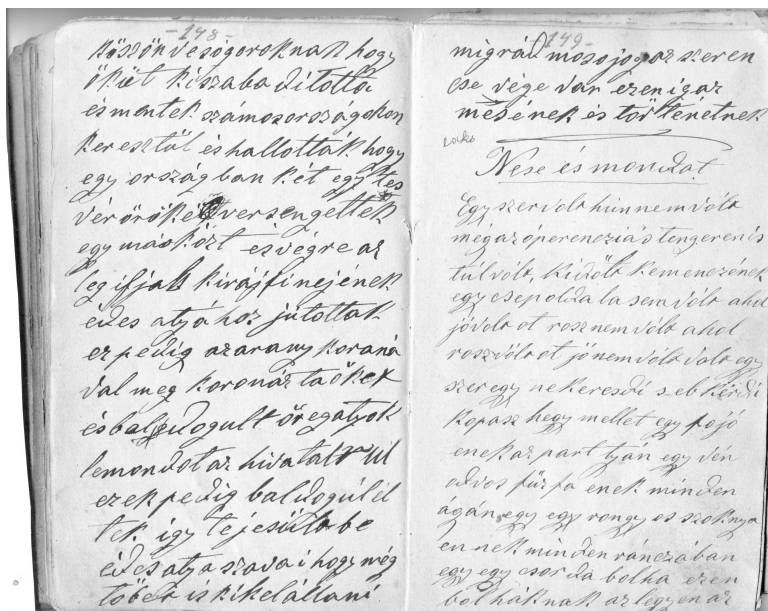 -148-
köszönve sogoroknak hogy
őkiel kiszabaditotta
és mentek számos országokon
keresztöl és hallották hogy
egy országban két egy tes
vér örökél versengettek
egy masközt és végre az
legifjab kirájfi nejének
édes atyához jutottak
ez pedig azarany koroná
val meg koronázta őket
és baldogult öregatyok
lemondot az hivatalrul
ezek pedig baldogúl él
tek így tejesült be
édes atya szavai hogy még
töbet is kikelállani
-149-
migrád mosojog az szeren
cse vége van ezen igaz
mésének és történetnek
Nese és mondat
Egyszer volt hun nem vólt
még az óperencziás tengeren is
túl vólt, kidőlt kemenczének
egy csep oldala sem vólt ahol
jó vólt ot rosz nem vólt ahol
rosz vólt ot jó nem volt volt egy
szer egy nekeresdi s eb kérdi
kopasz hegy mellet egy fojó
enek az part tyán egy vén
odvos fűzfa enek minden
ágán egy egy rongyos szoknya
ennek minden ránczában
egy egy csorda bolha ezen
bolháknak az legyen az